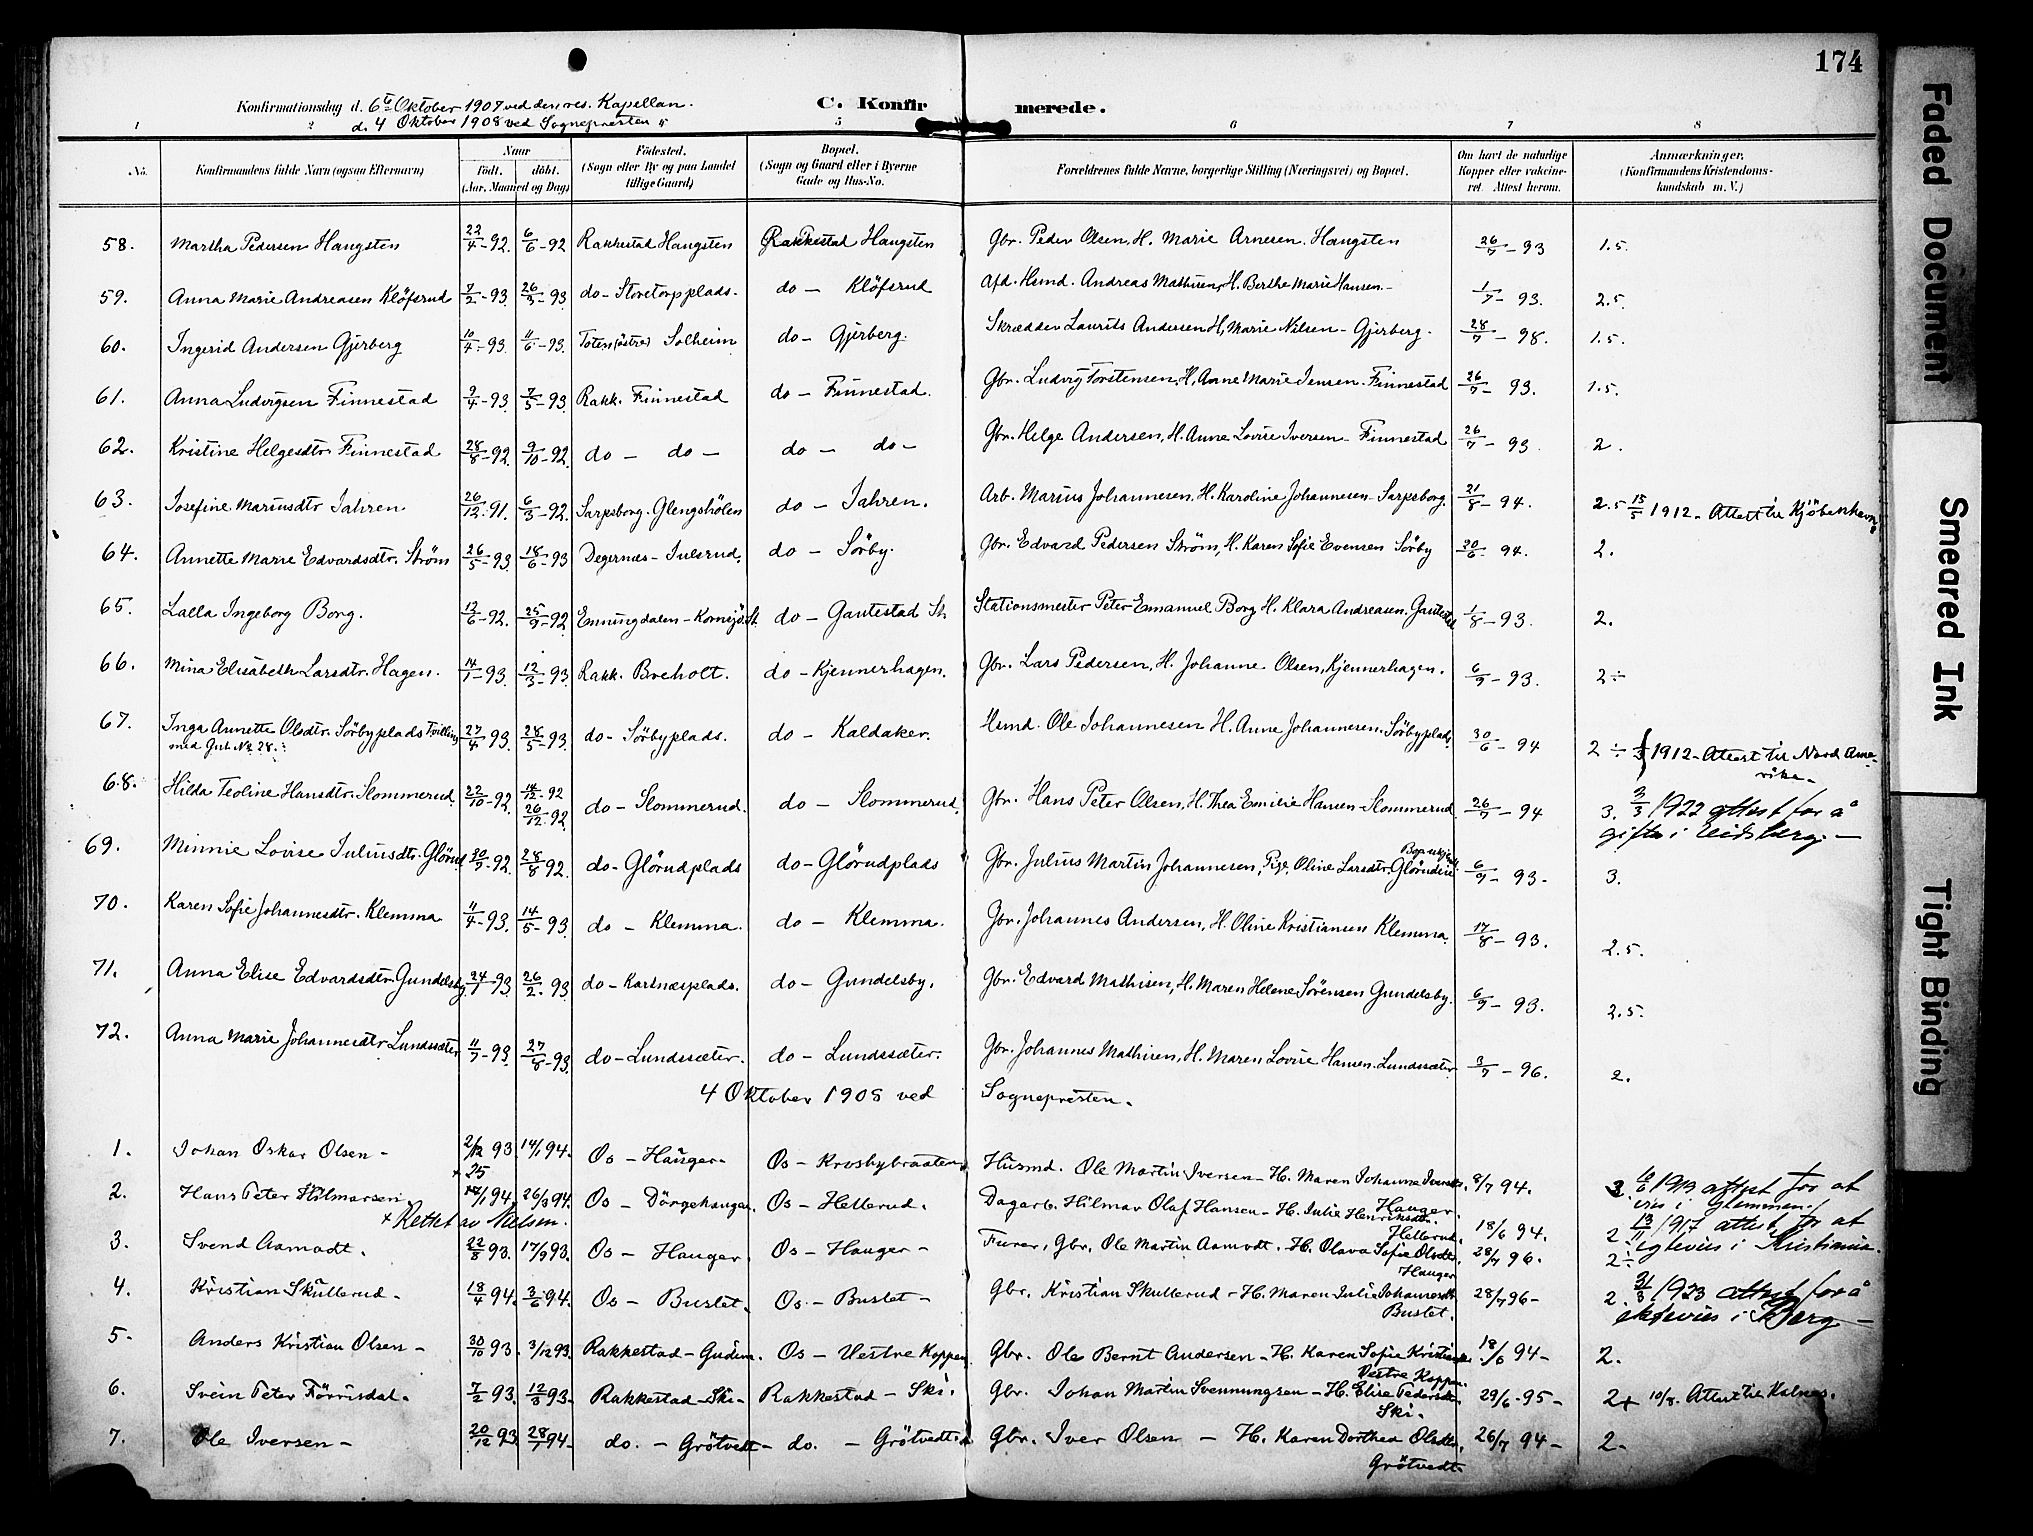 174
Konfirmationsdag d. 6te Oktober 1907 ved den res. Kapellan.
d. 4 Oktober 1908 ved Sognepresten
C. Konfirmerede.
1 2 5 6 7 8
No. Konfirmandens fulde Navn (ogsaa Efternavn) Naar Födt. döbt. (Aar, Maaned og Dag) Födested. (Sogn eller By og paa Landet tillige Gaard) Bopæl. (Sogn og Gaard eller i Byerne Gade og Hus-No. Forældrenes fulde Navne, borgerlige Stilling (Næringsvei) og Bopæl. Om havt de naturlige Kopper eller vakcineret. Attest herom. Anmærkninger. (Konfirmandens Kristendomskundskab m. V.)
58. Martha Pedersen Haugsten 22/4-92. 6/6-92 Rakkestad Haugsten Rakkestad Haugsten Gbr. Peder Olsen, H. Marie Arnesen. Haugsten 26/7-93 1.5.
59. Anna Marie Andreasen Klöfsrud 7/2-93 26/3-93 do- Storetorpplads. do - Klöfsrud Afd. Hsmd. Andreas Mathisen, H. Berthe Marie Hansen.- 1/7-93. 2.5.
60. Ingerid Andersen Gjerberg 10/4-93 11/6-93. Toten (östre) Solheim do- Gjerberg. Skrædder Laurits Andersen H. Marie Nilsen- Gjerberg. 28/7-98. 1.5.
61. Anna Ludvigsen Finnestad 9/4-93 7/5-93 Rakk. Finnestad do - Finnestad. Gbr. Ludvig Torstensen, H. Anne Marie Jensen. Finnestad 26/7-93. 1.5.
62. Kristine Helgesdtr. Finnestad 28/8-92 9/10-92. do - do - do - do - Gbr. Helge Andersen, H. Anne Lovise Iversen- Finnestad 26/7-93 2.
63. Josefine Mariusdtr Jahren. 26/12-91. 6/3-92. Sarpsborg. Glengshölen do - Jahren. Arb. Marius Johannesen, H. Karoline Johannesen- Sarpsborg. 21/8-94. 2.5 15/5 1912. Attest til Kjöbenhavn
64. Annette Marie Edvardsdtr. Ström 26/5-93. 18/6-93 Degernæs- Julsrud. do - Sörby. Gbr. Edvard Pedersen Ström, H. Karen Sofie Evensen Sörby 20/6-94. 2.
65. Lalla Ingeborg Borg. 12/6-92. 25/9-92 Enningdalen- Kornsjö St. do - Gautestad St. Stationsmester Peter Emanuel Borg H. Klara Andreasen. Gautestad 1/8-93. 2.
66. Mina Elisabeth Larsdtr. Hagen. 14/1-93. 12/3-93. Rakk. Breholt. do - Kjennerhagen. Gbr. Lars Pedersen, H. Johanne Olsen, Kjennerhagen. 6/9-93. 2÷
67. Inga Annette Olsdtr. Sörbyplads Tvilling 27/4-93. 28/5-93. do- Sörbyplads. do - Kaldaker. Hsmd. Ole Johannesen H. Anne Johannesen. Sörbyplads 30/6-94 2÷ 1912- Attest til Nord Ame-
med Gut No 28. rika.
68. Hilda Teoline Hansdtr. Slommerud. 22/10-92. 26/12-92 do- Slommerud. do - Slommerud. Gbr. Hans Peter Olsen, H. Thea Emilie Hansen- Slommerud 26/7-94 3. 3/3 1922 attest for å
gifte i Eidsberg.-
69. Minnie Lovise Juliusdtr. Glörud 30/7-92. 28/8 92. do- Glörudplads do- Glörudplads Gbr. Julius Martin Johannesen, Pige, Oline Larsdtr. 6/9-93- 3.
70. Karen Sofie Johannesdtr. Klemma 11/4-93. 14/5-93. do - Klemma. do - Klemma. Gbr. Johannes Andersen, H. Oline Kristiansen Klemma. 17/8-93. 2.5.
71. Anna Elise Edvardsdtr. Gundelsby. 24/1-93 26/2-93 do- Kartnæsplads. do- Gundelsby. Gbr. Edvard Mathisen, H. Maren Helene Sörensen Gundelsby. 6/9-93. 2.5.
72. Anna Marie Johannesdtr Lundssæter 11/7-93. 27/8-93. do- Lundssæter. do - Lundssæter. Gbr. Johannes Mathisen, H. Maren Lovise Hansen. Lundssæter 3/7-96. 2.
4 Oktober 1908 ved Sognepresten.
1. Johan Oskar Olsen- 2/12 93 14/1 94. Os - Hauger. Os - Krosbybraaten Husmd. Ole Martin Iversen- H. Maren Johanne Iversdtr. 8/7 94. 3. 6/6 1919 attest for at
Hauger. vies i Glemmen
2. Hans Peter Hilmarsen. + 25 /1 94. 26/3 94. Os - Dörgehaugen. Os - Hellerud. Dagarb. Hilmar Olaf Hansen- H. Julie Henriksdtr. 18/6 94. 2. 13/11 1917 attest for at
+ Rettet av Nielsen. Hellerud. egtevies i Kristiania.
3. Svend Aamodt. 22/8 93. 17/9 93. Os - Hauger. Os - Hauger - Furer, Gbr. Ole Martin Aamodt. H. Olava Sofie Olsdtr. 28/7 96. 2÷
Hauger
4. Kristian Skullerud- 18/4 94. 3/6 94. Os - Bustet. Os.- Bustet- Gbr. Kristian Skullerud- H. Maren Julie Johannesdtr. 28/7 96- 2. 21/3 1923 attest for å
Bustet. ektevies i Berg-
5. Anders Kristian Olsen- 30/10 93. 3/12 93. Rakkestad- Gudim. Os - Vestre Koppen. Gbr. Ole Bernt Andersen- H. Karen Sofie 18/6 94- 2.
Vestre Koppen.
6. Svein Peter Förrisdal. 7/2 93. 12/3 93- Rakkestad- Ski- Rakkestad- Ski. Gbr. Johan Martin Svennungsen- H. Elise Pedersdtr 29/6-95- 2+ 10/8. Attest til Kalnes.
Ski.
7. Ole Iversen- 20/12 93 28/1 94- do. - Grötvedt- do. - Grötvedt. Gbr. Iver Olsen - H. Karen Dorthea Olsdtr. 26/7 94- 2-
Grötvedt
Faded Document
Smeared Ink
Tight Binding